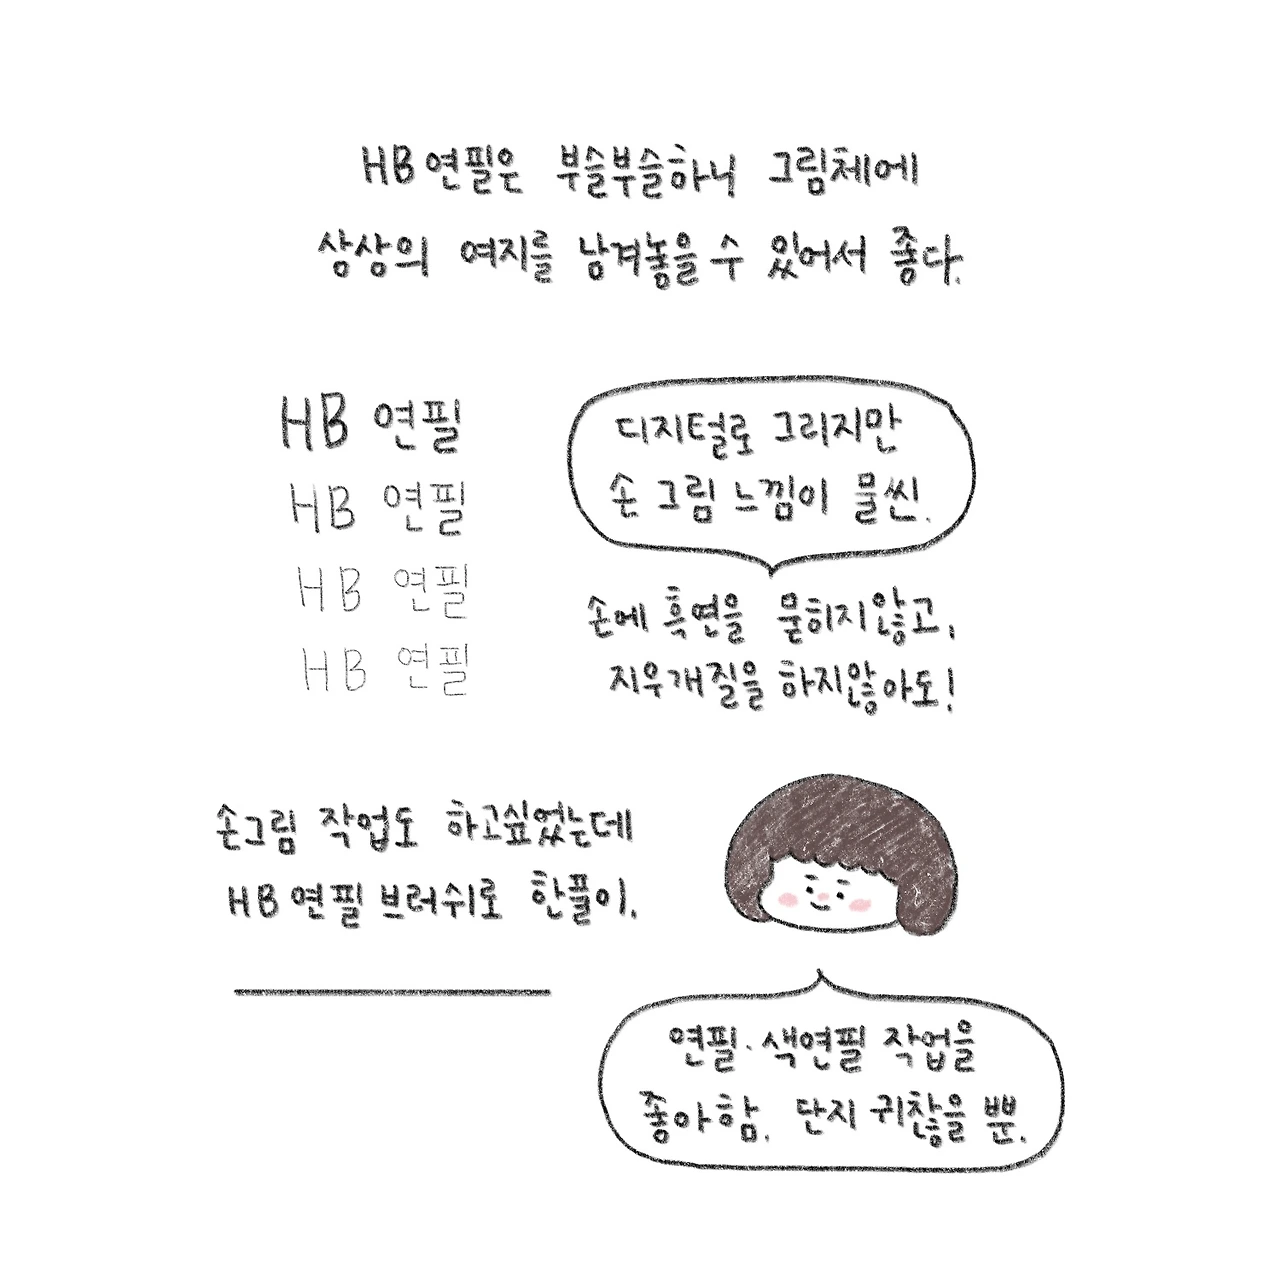 HB연필은 부슬부슬하니 그림체에
상상의 여지를 남겨놓을 수 있어서 좋다.
HB 연필
HB 연필
HB 연필
HB 연필
디지털로 그리지만
손 그림 느낌이 물씬.
손에 흑연을 묻히지않고,
지우개질을 하지않아도!
손그림 작업도 하고싶었는데
HB연필 브러쉬로 한풀이.
연필·색연필 작업을
좋아함. 단지 귀찮을 뿐.